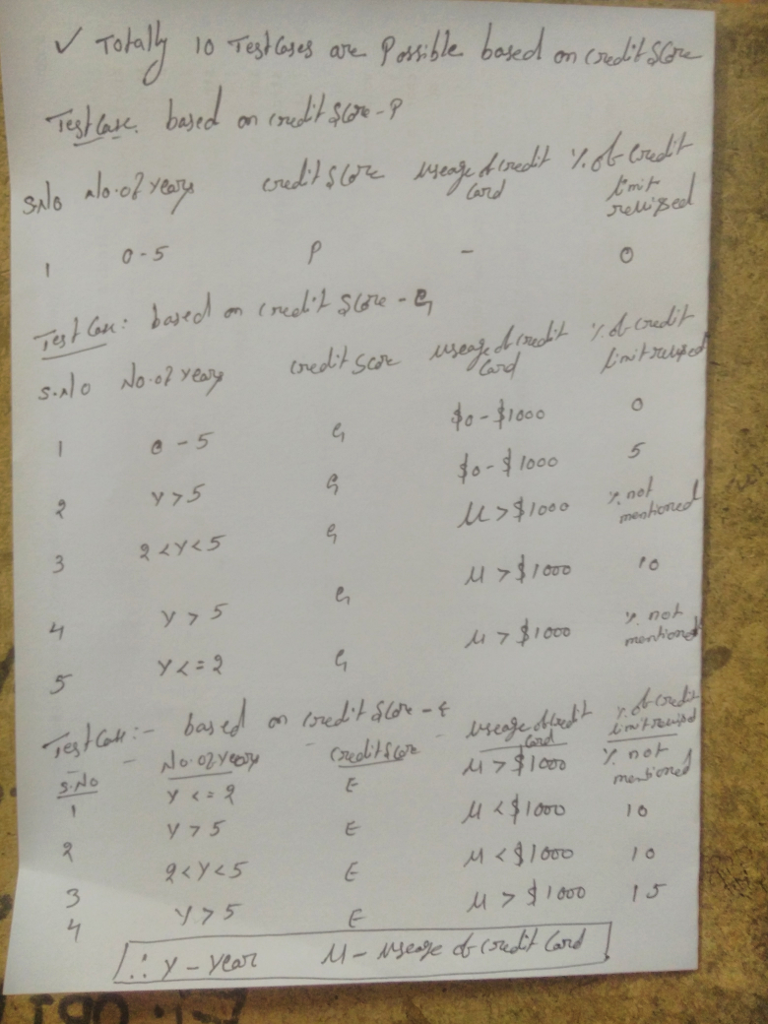 ✓ Totally 10 TestCases are Possible based on Credit Score
TestCase: based on credit Score - P
S.No No.of years credit Score useage of credit Card % of Credit limit revised
1 0-5 P - 0
TestCase: based on credit Score - G
S.No No.of years credit Score useage of credit Card % of credit limit revised
1 0-5 G $0-$1000 0
2 Y>5 G $0-$1000 5
3 2<Y<5 G U>$1000 % not mentioned
4 Y>5 G U>$1000 10
5 Y<=2 G U>$1000 % not mentioned
TestCase:- based on credit Score - E
S.No No.of years Credit Score useage of credit Card % of credit limit revised
1 Y<=2 E U>$1000 % not mentioned
2 Y>5 E U<$1000 10
3 2<Y<5 E U<$1000 10
4 Y>5 E U>$1000 15
∴ Y - year U - useage of credit Card